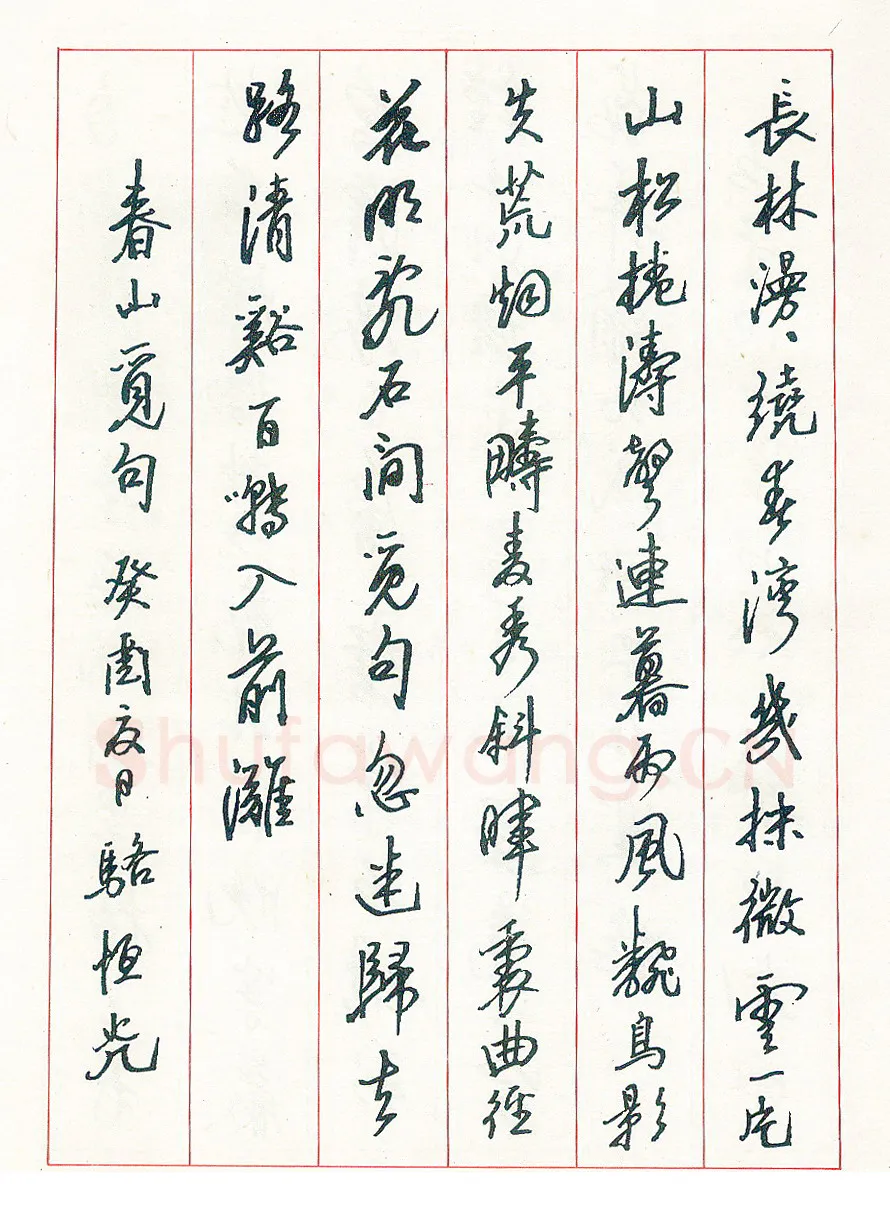 長林漫、繞春灣幾抹微雲一片
山松捲濤聲連暮雨風飜鳥影
失荒烟平疇麦秀斜暉裏曲徑
花明亂石間覓句忽迷歸去
路清谿百囀入前灘
春山覓句 癸酉夏日 駱恒光
Shufawang.CN